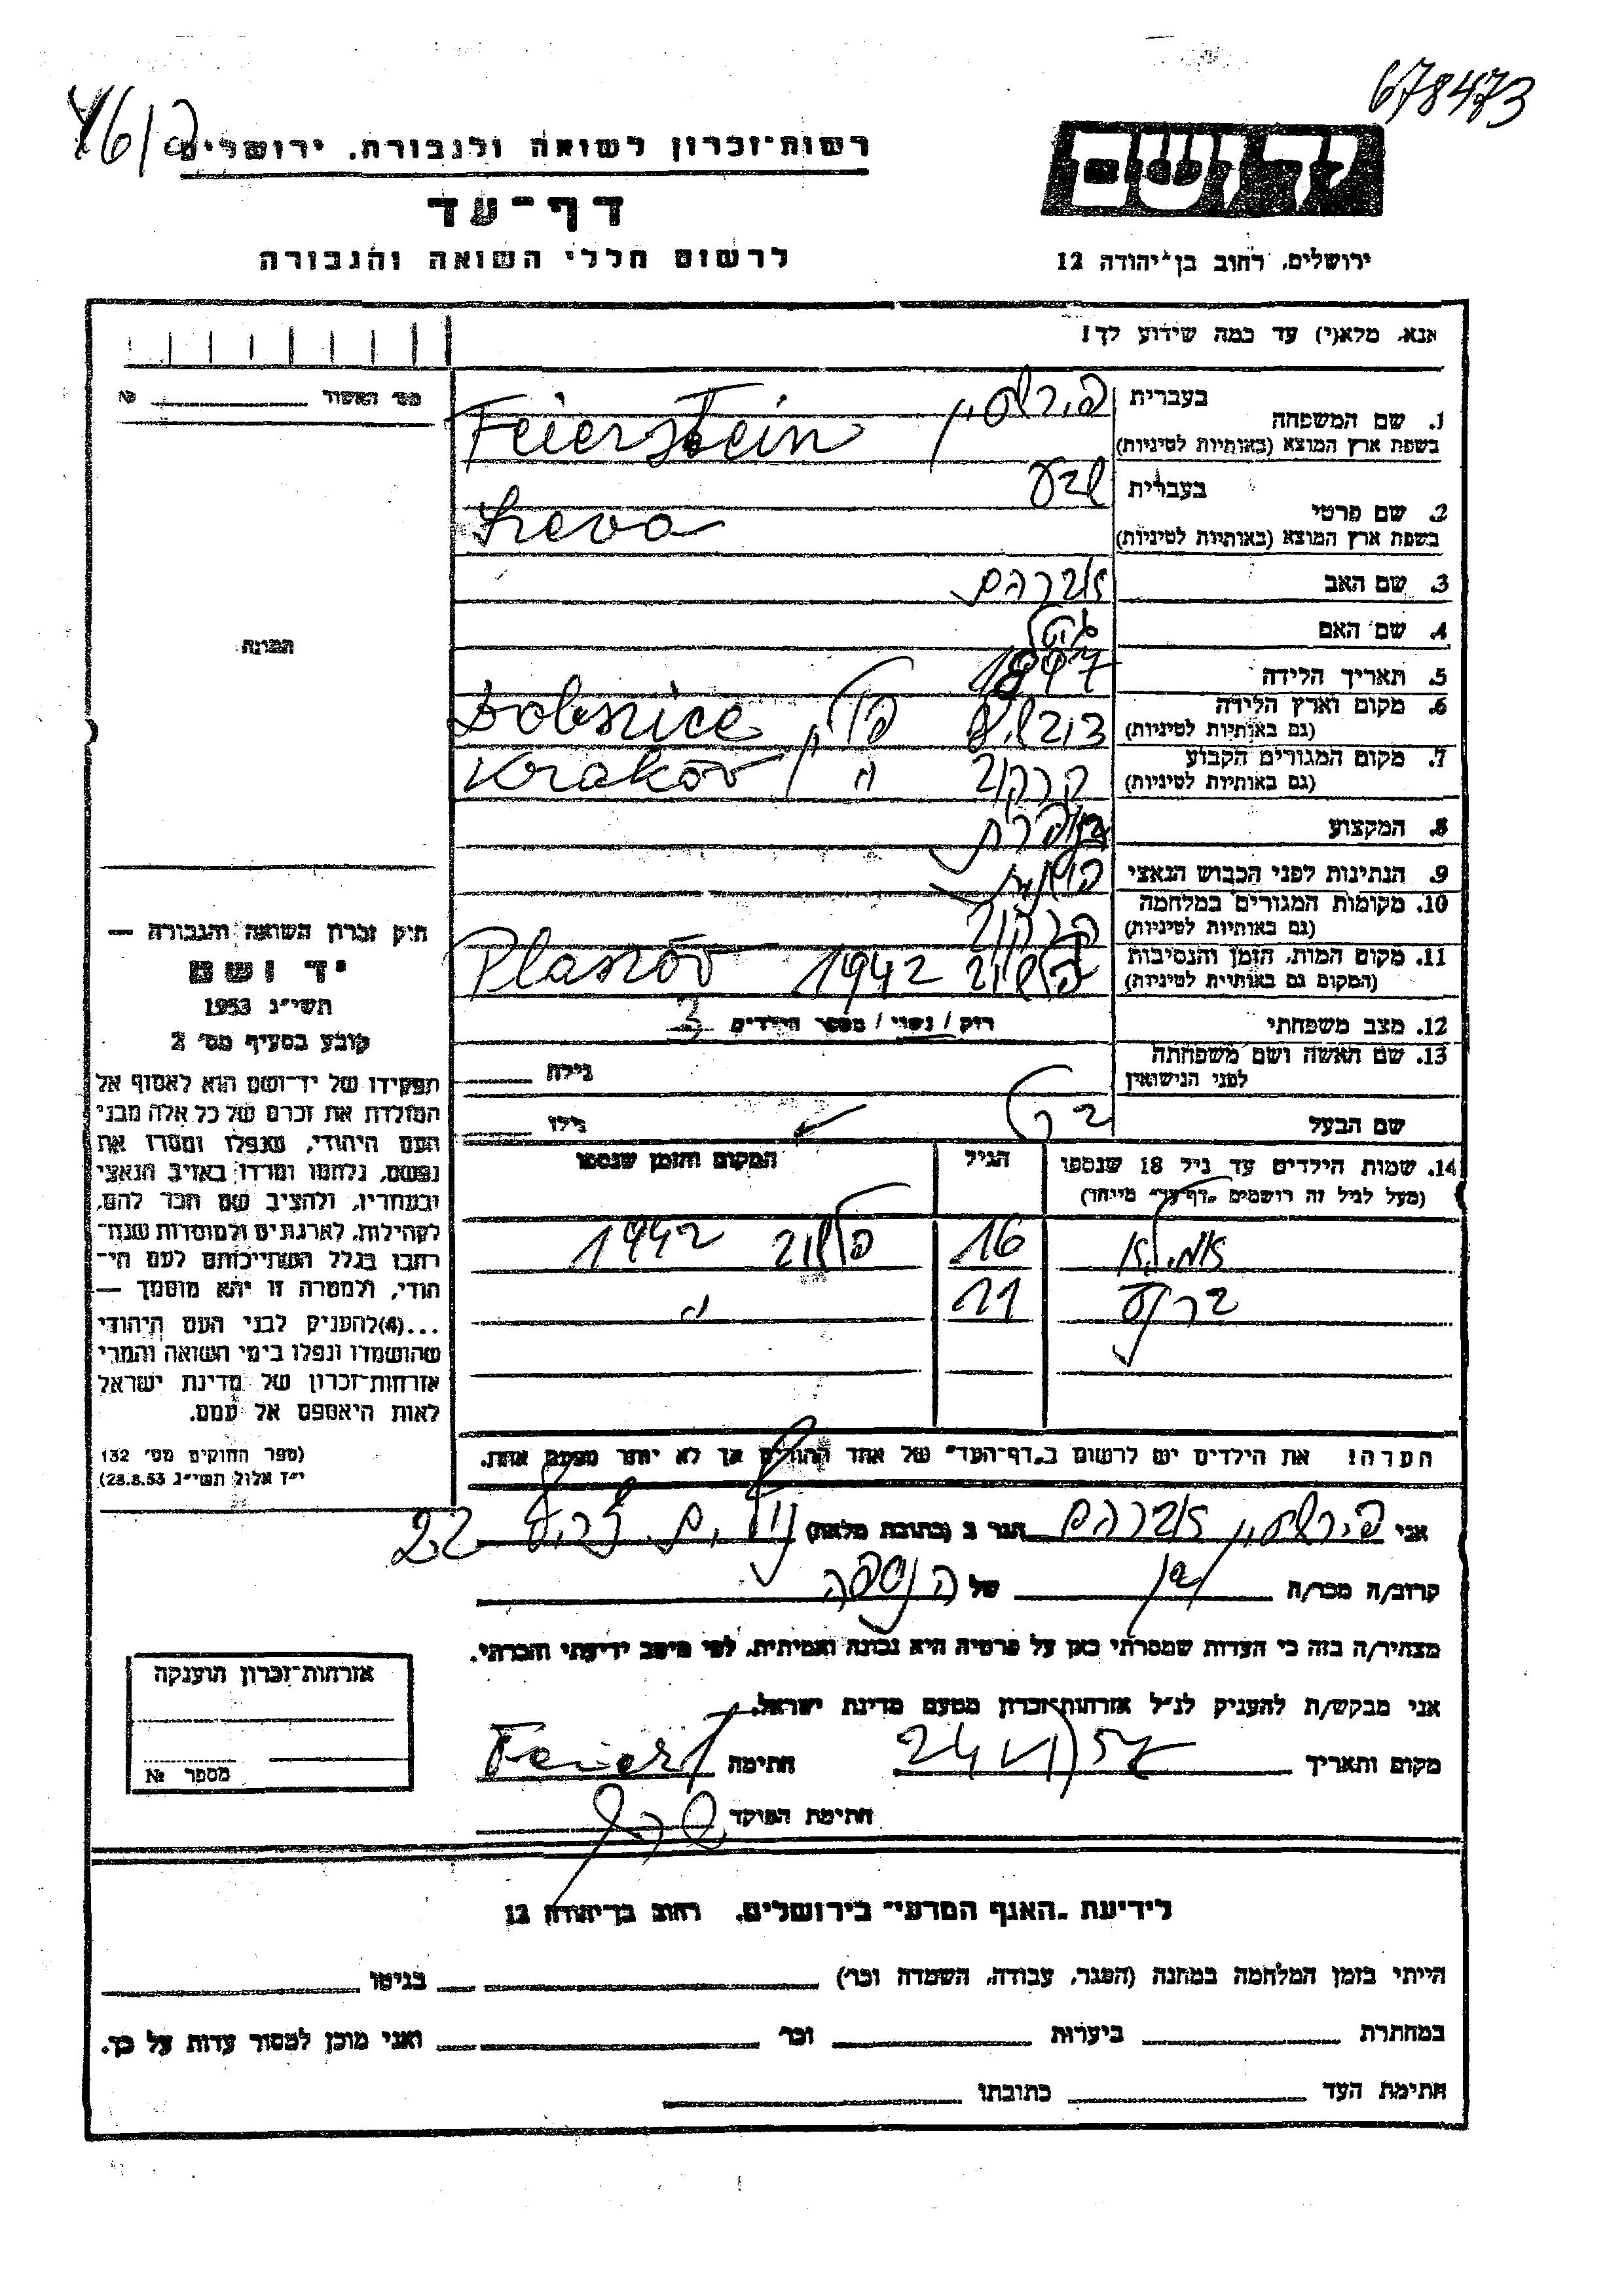 678473
רשות־זכרון לשואה ולגבורה. ירושלים
דף־עד
לרשום חללי השואה והגבורה
יד ושם
ירושלים, רחוב בן־יהודה 12
אנא, מלא(י) עד כמה שידוע לך!
מס׳ האשור № 
1. שם המשפחה
בעברית
בשפת ארץ המוצא (באותיות לטיניות)
Feierstein
2. שם פרטי
בעברית
שבע
בשפת ארץ המוצא (באותיות לטיניות)
3. שם האב
אברהם
4. שם האם
5. תאריך הלידה
1897
6. מקום וארץ הלידה
(גם באותיות לטיניות)
פולין
Dobszice
7. מקום המגורים הקבוע
(גם באותיות לטיניות)
קרקוב " Kraków
8. המקצוע
9. הנתינות לפני הכבוש הנאצי
פולנית
10. מקומות המגורים במלחמה
(גם באותיות לטיניות)
קרקוב
11. מקום המות, הזמן והנסיבות
(המקום גם באותיות לטיניות)
פלשוב 1942 Plaszów
12. מצב משפחתי
רוק / נשוי / מספר הילדים 3
13. שם האשה ושם משפחתה
לפני הנישואין
גילה
שם הבעל
גילו
14. שמות הילדים עד גיל 18 שנספו
(מעל לגיל זה רושמים „דף־עד״ מיוחד)
הגיל
המקום והזמן שנספו
16 פלשוב 1942
11 "
הערה! את הילדים יש לרשום ב„דף־העד״ של אחד ההורים אך לא יותר מפעם אחת.
התמונה
חוק זכרון השואה והגבורה —
יד ושם
תשי״ג 1953
קובע בסעיף מס׳ 2
תפקידו של יד־ושם הוא לאסוף אל
המולדת את זכרם של כל אלה מבני
העם היהודי, שנפלו ומסרו את
נפשם, נלחמו ומרדו באויב הנאצי
ובעוזריו, ולהציב שם וזכר להם,
לקהילות, לארגונים ולמוסדות שנח־
רבו בגלל השתייכותם לעם הי־
הודי, ולמטרה זו יהא מוסמך —
...(4)להעניק לבני העם היהודי
שהושמדו ונפלו בימי השואה והמרי
אזרחות־זכרון של מדינת ישראל
לאות היאספם אל עמם.
(ספר החוקים מס׳ 132
י״ז אלול תשי״ג 28.8.53)
אני פירשטיין אברהם הגר ב (כתובת מלאה) 22
קרוב/ה מכר/ה בן של הנספה
מצהיר/ה בזה כי העדות שמסרתי כאן על פרטיה היא נכונה ואמיתית, לפי מיטב ידיעתי והכרתי.
אני מבקש/ת להעניק לנ״ל אזרחות־זכרון מטעם מדינת ישראל.
מקום ותאריך 24/VI 57 חתימה
חתימת הפוקד
אזרחות־זכרון הוענקה
מספר №
לידיעת „האגף המדעי״ בירושלים, רחוב בן־יהודה 12
הייתי בזמן המלחמה במחנה (הסגר, עבודה, השמדה וכר׳) בגיטו
במחתרת ביערות וכר׳ ואני מוכן למסור עדות על כך.
חתימת העד כתובתו